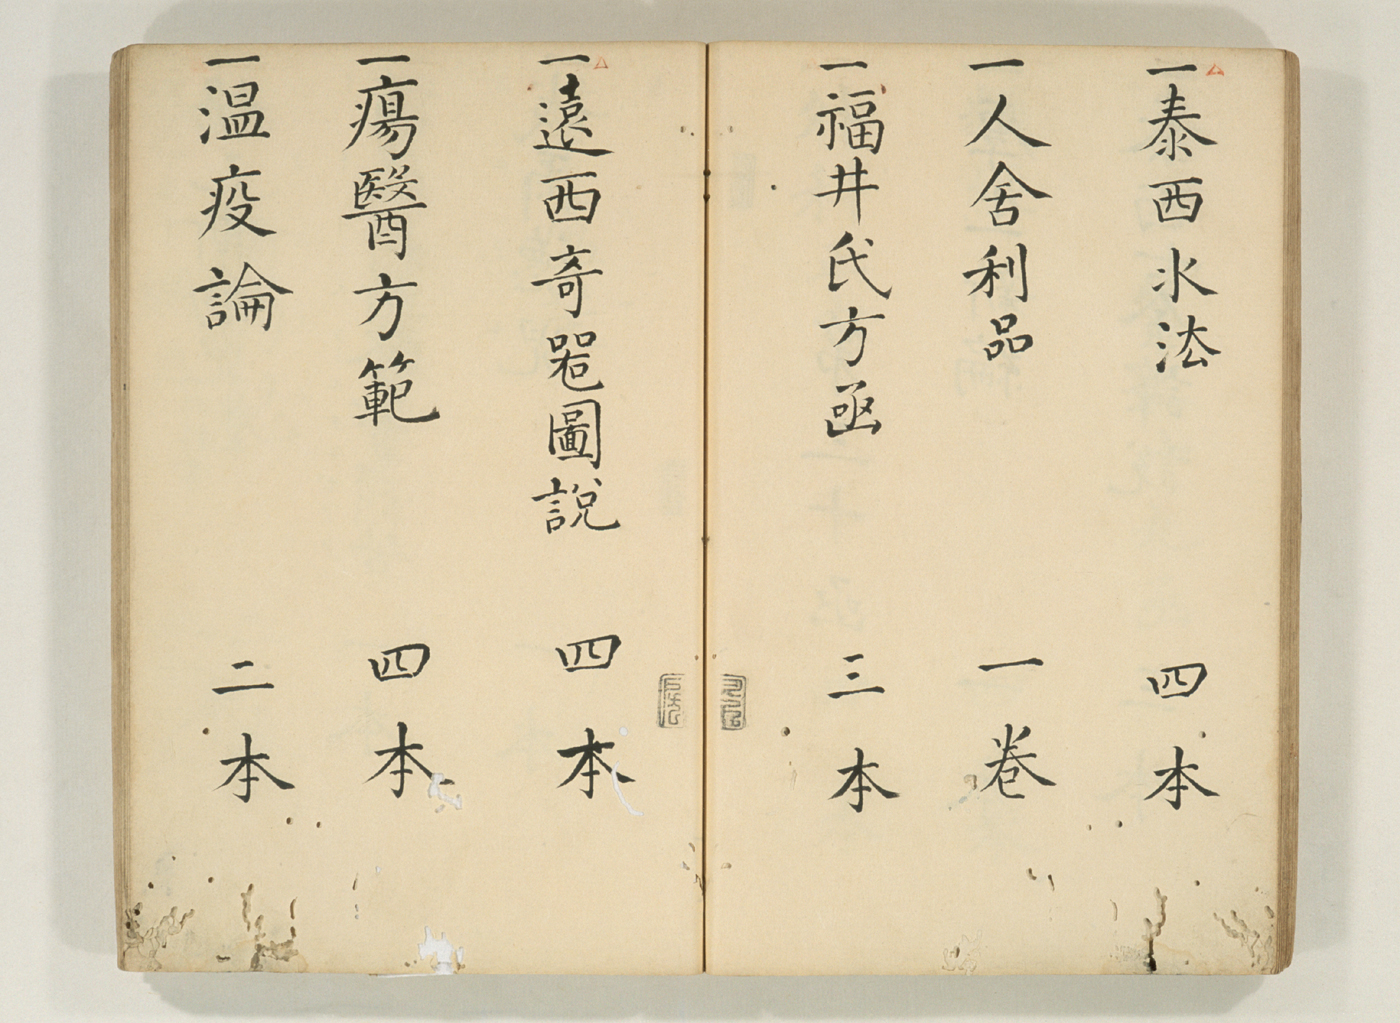 一泰西水法 四本
一人舍利品 一巻
一福井氏方函 三本
一遠西奇噐圖說 四本
一瘍醫方範 四本
一温疫論 二本